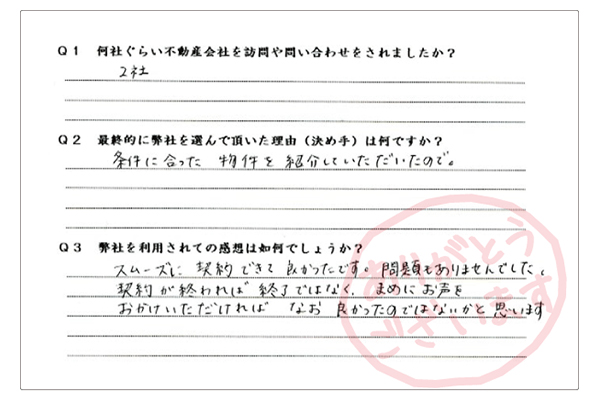 Q1 何社ぐらい不動産会社を訪問や問い合わせをされましたか？
2社
Q2 最終的に弊社を選んで頂いた理由（決め手）は何ですか？
条件に合った 物件を紹介していただいたので。
Q3 弊社を利用されての感想は如何でしょうか？
スムーズに 契約できて良かったです。問題もありませんでした。
契約が終われば終了ではなく、まめにお声を
おかけいただければ なお 良かったのではないかと思います
ありがとう
ございます